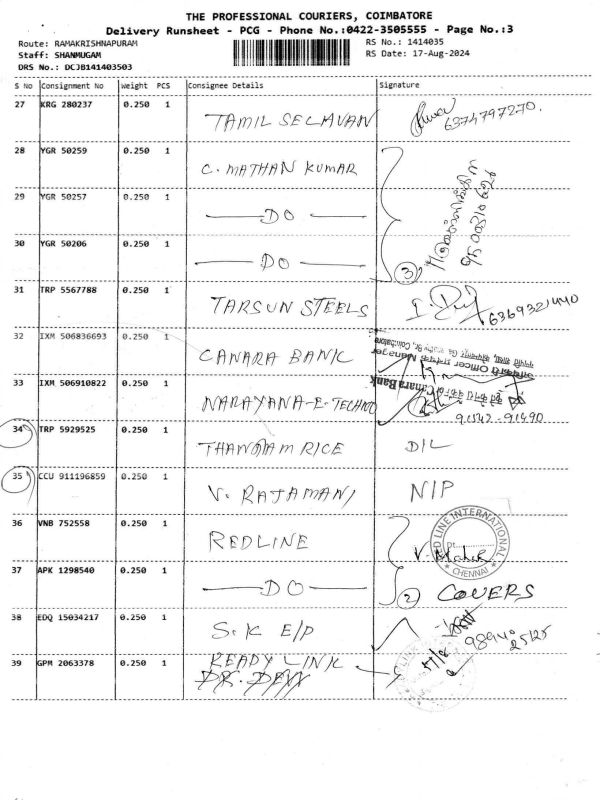 THE PROFESSIONAL COURIERS, COIMBATORE
Delivery Runsheet - PCG - Phone No.:0422-3505555 - Page No.:3
Route: RAMAKRISHNAPURAM
RS No.: 1414035
Staff: SHANMUGAM
RS Date: 17-Aug-2024
DRS No.: DCJB141403503
S No Consignment No Weight PCS Consignee Details Signature
27 KRG 280237 0.250 1 TAMIL SELAVAN 6374797270.
28 YGR 50259 0.250 1 C. MATHAN KUMAR
29 YGR 50257 0.250 1 DO
30 YGR 50206 0.250 1 DO 3
31 TRP 5567788 0.250 1 TARSUN STEELS 6369321440
32 IXM 506836693 0.250 1 CANARA BANK
Coimbatore
Officer Manager
33 IXM 506910822 0.250 1 NARAYANA-E-TECHNO
Canara Bank
91542-91490
34 TRP 5929525 0.250 1 THANGAM RICE D/L
35 CCU 911196859 0.250 1 V. RAJAMANI NIP
36 VNB 752558 0.250 1 REDLINE
RED LINE INTERNATIONAL
CHENNAI
37 APK 1298540 0.250 1 DO 2 COVERS
38 EDQ 15034217 0.250 1 S.K E/P
98940
25125
39 GPM 2063378 0.250 1 READY LINK